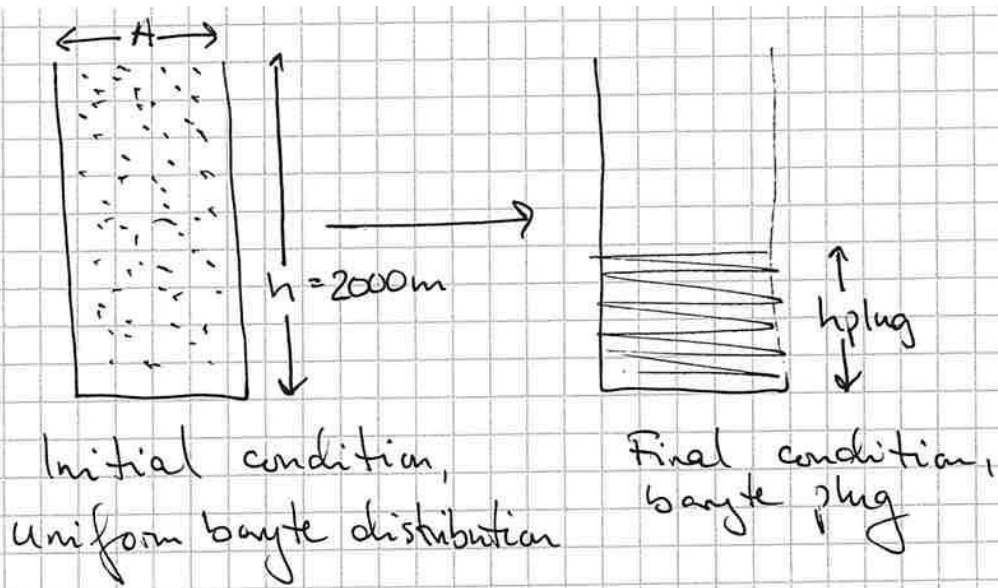 A
h = 2000m
hplug
Initial condition,
uniform baryte distribution
Final condition,
baryte plug